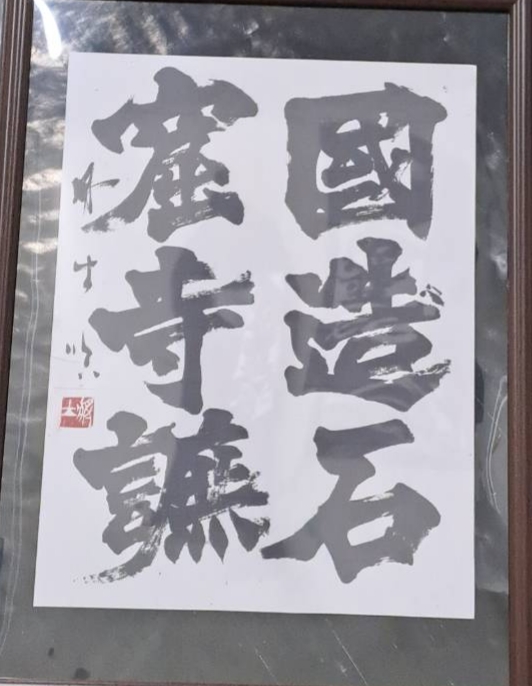 國造石
窟寺譕